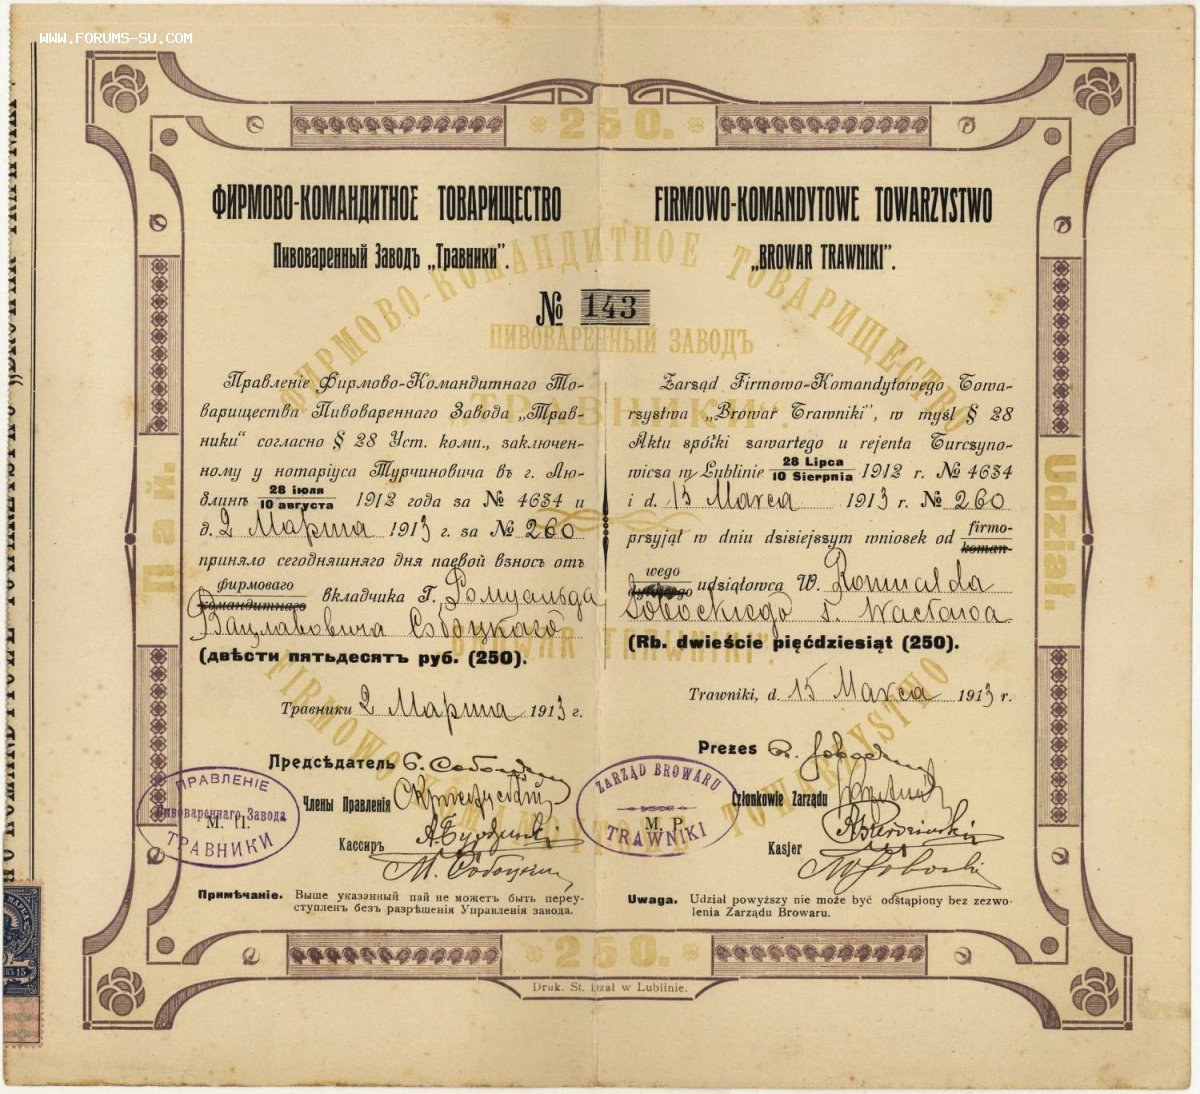 WWW.FORUMS-SU.COM
250.
ФИРМОВО-КОМАНДИТНОЕ ТОВАРИЩЕСТВО
Пивоваренный Заводъ „Травники“.
FIRMOWO-KOMANDYTOWE TOWARZYSTWO
„BROWAR TRAWNIKI“.
№ 143
ФИРМОВО-КОМАНДИТНОЕ ТОВАРИЩЕСТВО
ПИВОВАРЕННЫЙ ЗАВОДЪ
„ТРАВНИКИ“.
Пай.
Udział.
Правленіе Фирмово-Командитнаго То-
варищества Пивовареннаго Завода „Трав-
ники“ согласно § 28 Уст. комп., заключен-
ному у нотаріуса Турчиновича въ г. Лю-
блинѣ 28 іюля / 10 августа 1912 года за № 4634 и
д. 2 Марта 1913 г. за № 260
приняло сегодняшняго дня паевой взносъ отъ
фирмоваго
командитнаго вкладчика Г. Ромуальда
Вацлавовича Соботскаго
(двѣсти пятьдесятъ руб. (250).
Травники 2 Марта 1913 г.
Предсѣдатель
Члены Правленія
Кассиръ
ПРАВЛЕНІЕ
Пивовареннаго Завода
М. П.
ТРАВНИКИ
Примѣчаніе. Выше указанный пай не можетъ быть переу-
ступленъ безъ разрѣшенія Управленія завода.
Zarząd Firmowo-Komandytowego Towa-
rzystwa „Browar Trawniki“, w myśl § 28
Aktu spółki zawartego u rejenta Turczyno-
wicza w Lublinie 28 Lipca / 10 Sierpnia 1912 r. № 4634
i d. 15 Marca 1913 r. № 260
przyjął w dniu dzisiejszym wniosek od firmo-
koman-
wego
dytowego udziałowca W. Romualda
Sobockiego s. Wacława
(Rb. dwieście pięćdziesiąt (250).
Trawniki, d. 15 Marca 1913 r.
Prezes
Członkowie Zarządu
Kasjer
ZARZĄD BROWARU
M. P.
TRAWNIKI
Uwaga. Udział powyższy nie może być odstąpiony bez zezwo-
lenia Zarządu Browaru.
„BROWAR TRAWNIKI“.
FIRMOWO KOMANDYTOWE TOWARZYSTWO
250.
Druk. St. Dżał w Lublinie.